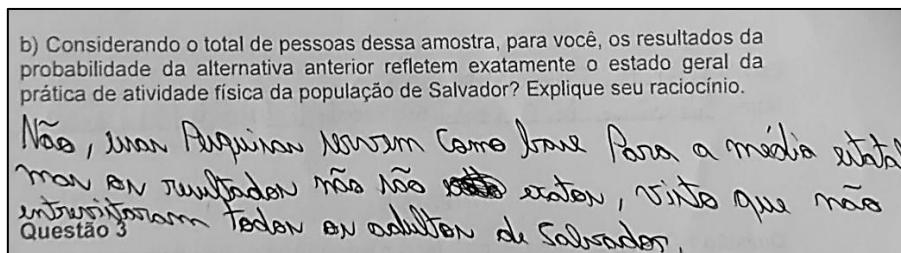 b) Considerando o total de pessoas dessa amostra, para você, os resultados da
probabilidade da alternativa anterior refletem exatamente o estado geral da
prática de atividade física da população de Salvador? Explique seu raciocínio.
Não, essas Pesquisas servem Como base Para a média estatal
mas os resultados não são exatos, visto que não
entrevistaram todos os adultos de Salvador.
Questão 3